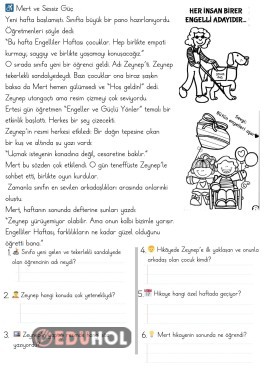 Mert ve Sessiz Güç
Yeni hafta başlamıştı. Sınıfta büyük bir pano hazırlanıyordu.
Öğretmenleri şöyle dedi:
"Bu hafta Engelliler Haftası çocuklar. Hep birlikte empati
kurmayı, saygıyı ve birlikte yaşamayı konuşacağız."
O sırada sınıfa yeni bir öğrenci geldi. Adı Zeynep'ti. Zeynep
tekerlekli sandalyedeydi. Bazı çocuklar ona biraz şaşkın
baksa da Mert hemen gülümsedi ve "Hoş geldin!" dedi.
Zeynep utangaçtı ama resim çizmeyi çok seviyordu.
Ertesi gün öğretmen "Engeller ve Güçlü Yönler" temalı bir
etkinlik başlattı. Herkes bir şey çizecekti.
Zeynep'in resmi herkesi etkiledi: Bir dağın tepesine çıkan
bir kuş ve altında şu yazı vardı:
"Uçmak isteyenin kanadına değil, cesaretine bakılır."
Mert bu sözden çok etkilendi. O gün teneffüste Zeynep'le
sohbet etti, birlikte oyun kurdular.
Zamanla sınıfın en sevilen arkadaşlıkları arasında onlarınki
oluştu.
Mert, haftanın sonunda defterine şunları yazdı:
"Zeynep yürüyemiyor olabilir. Ama onun kalbi bizimle yarışır.
Engelliler Haftası, farklılıkların ne kadar güzel olduğunu
öğretti bana."
HER İNSAN BİRER
ENGELLİ ADAYIDIR...
Sevgi,
Bütün engelleri aşar
1. Sınıfa yeni gelen ve tekerlekli sandalyede
olan öğrencinin adı neydi?
2. Zeynep hangi konuda çok yetenekliydi?
3.
yazıyordu?
4. Hikâyede Zeynep'e ilk yaklaşan ve onunla
arkadaş olan çocuk kimdi?
5. Hikâye hangi özel haftada geçiyor?
6. Mert hikayenin sonunda ne öğrendi?
EDUHOL